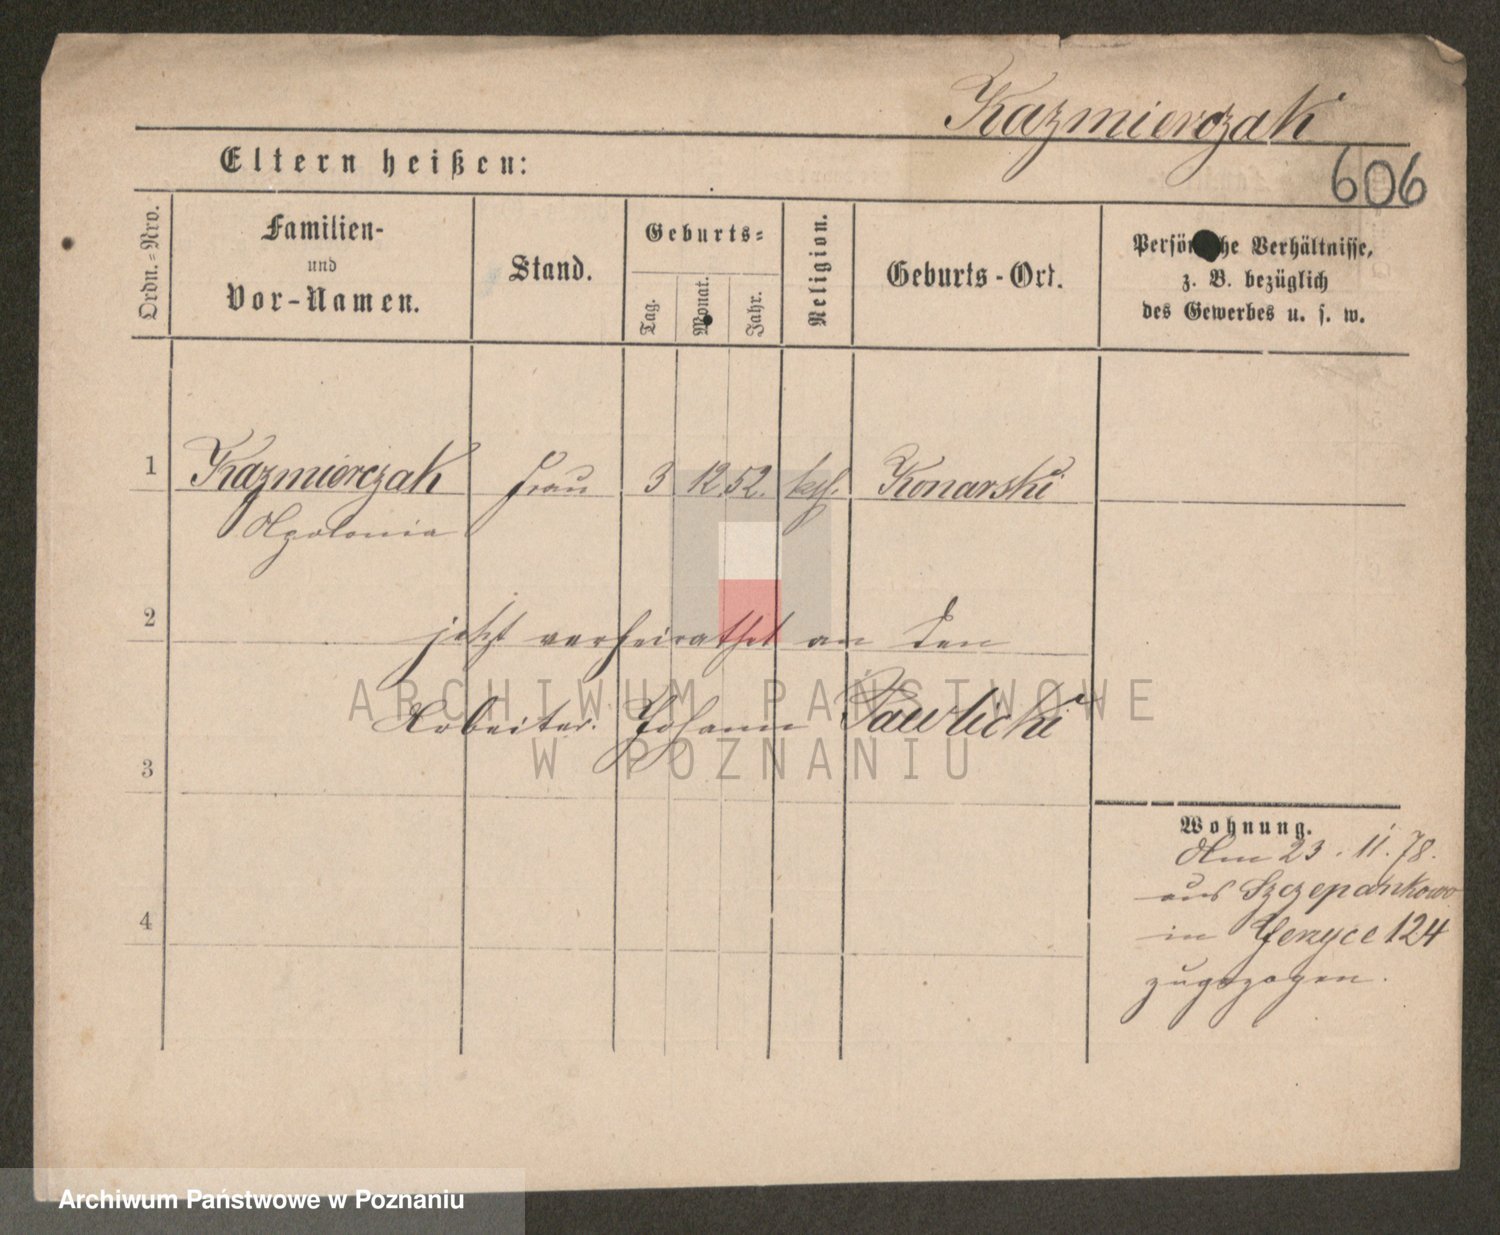 Kazmierczak
606
Eltern heißen:
Ordn.=Nro.
Familien-
und
Vor-Namen.
Stand.
Geburts=
Tag.
Monat.
Jahr.
Religion.
Geburts-Ort.
Persönliche Verhältnisse,
z. B. bezüglich
des Gewerbes u. s. w.
1 Kazmierczak Frau 3 12 52. kath. Konarski
Apolonia
2
jetzt verheirathet an den
Arbeiter Johann Pawlicki
3
4
Wohnung.
Am 23. 11. 78.
aus Szczepankowo
in Jerzyce 124
zugezogen.
ARCHIWUM PAŃSTWOWE
W POZNANIU
Archiwum Państwowe w Poznaniu